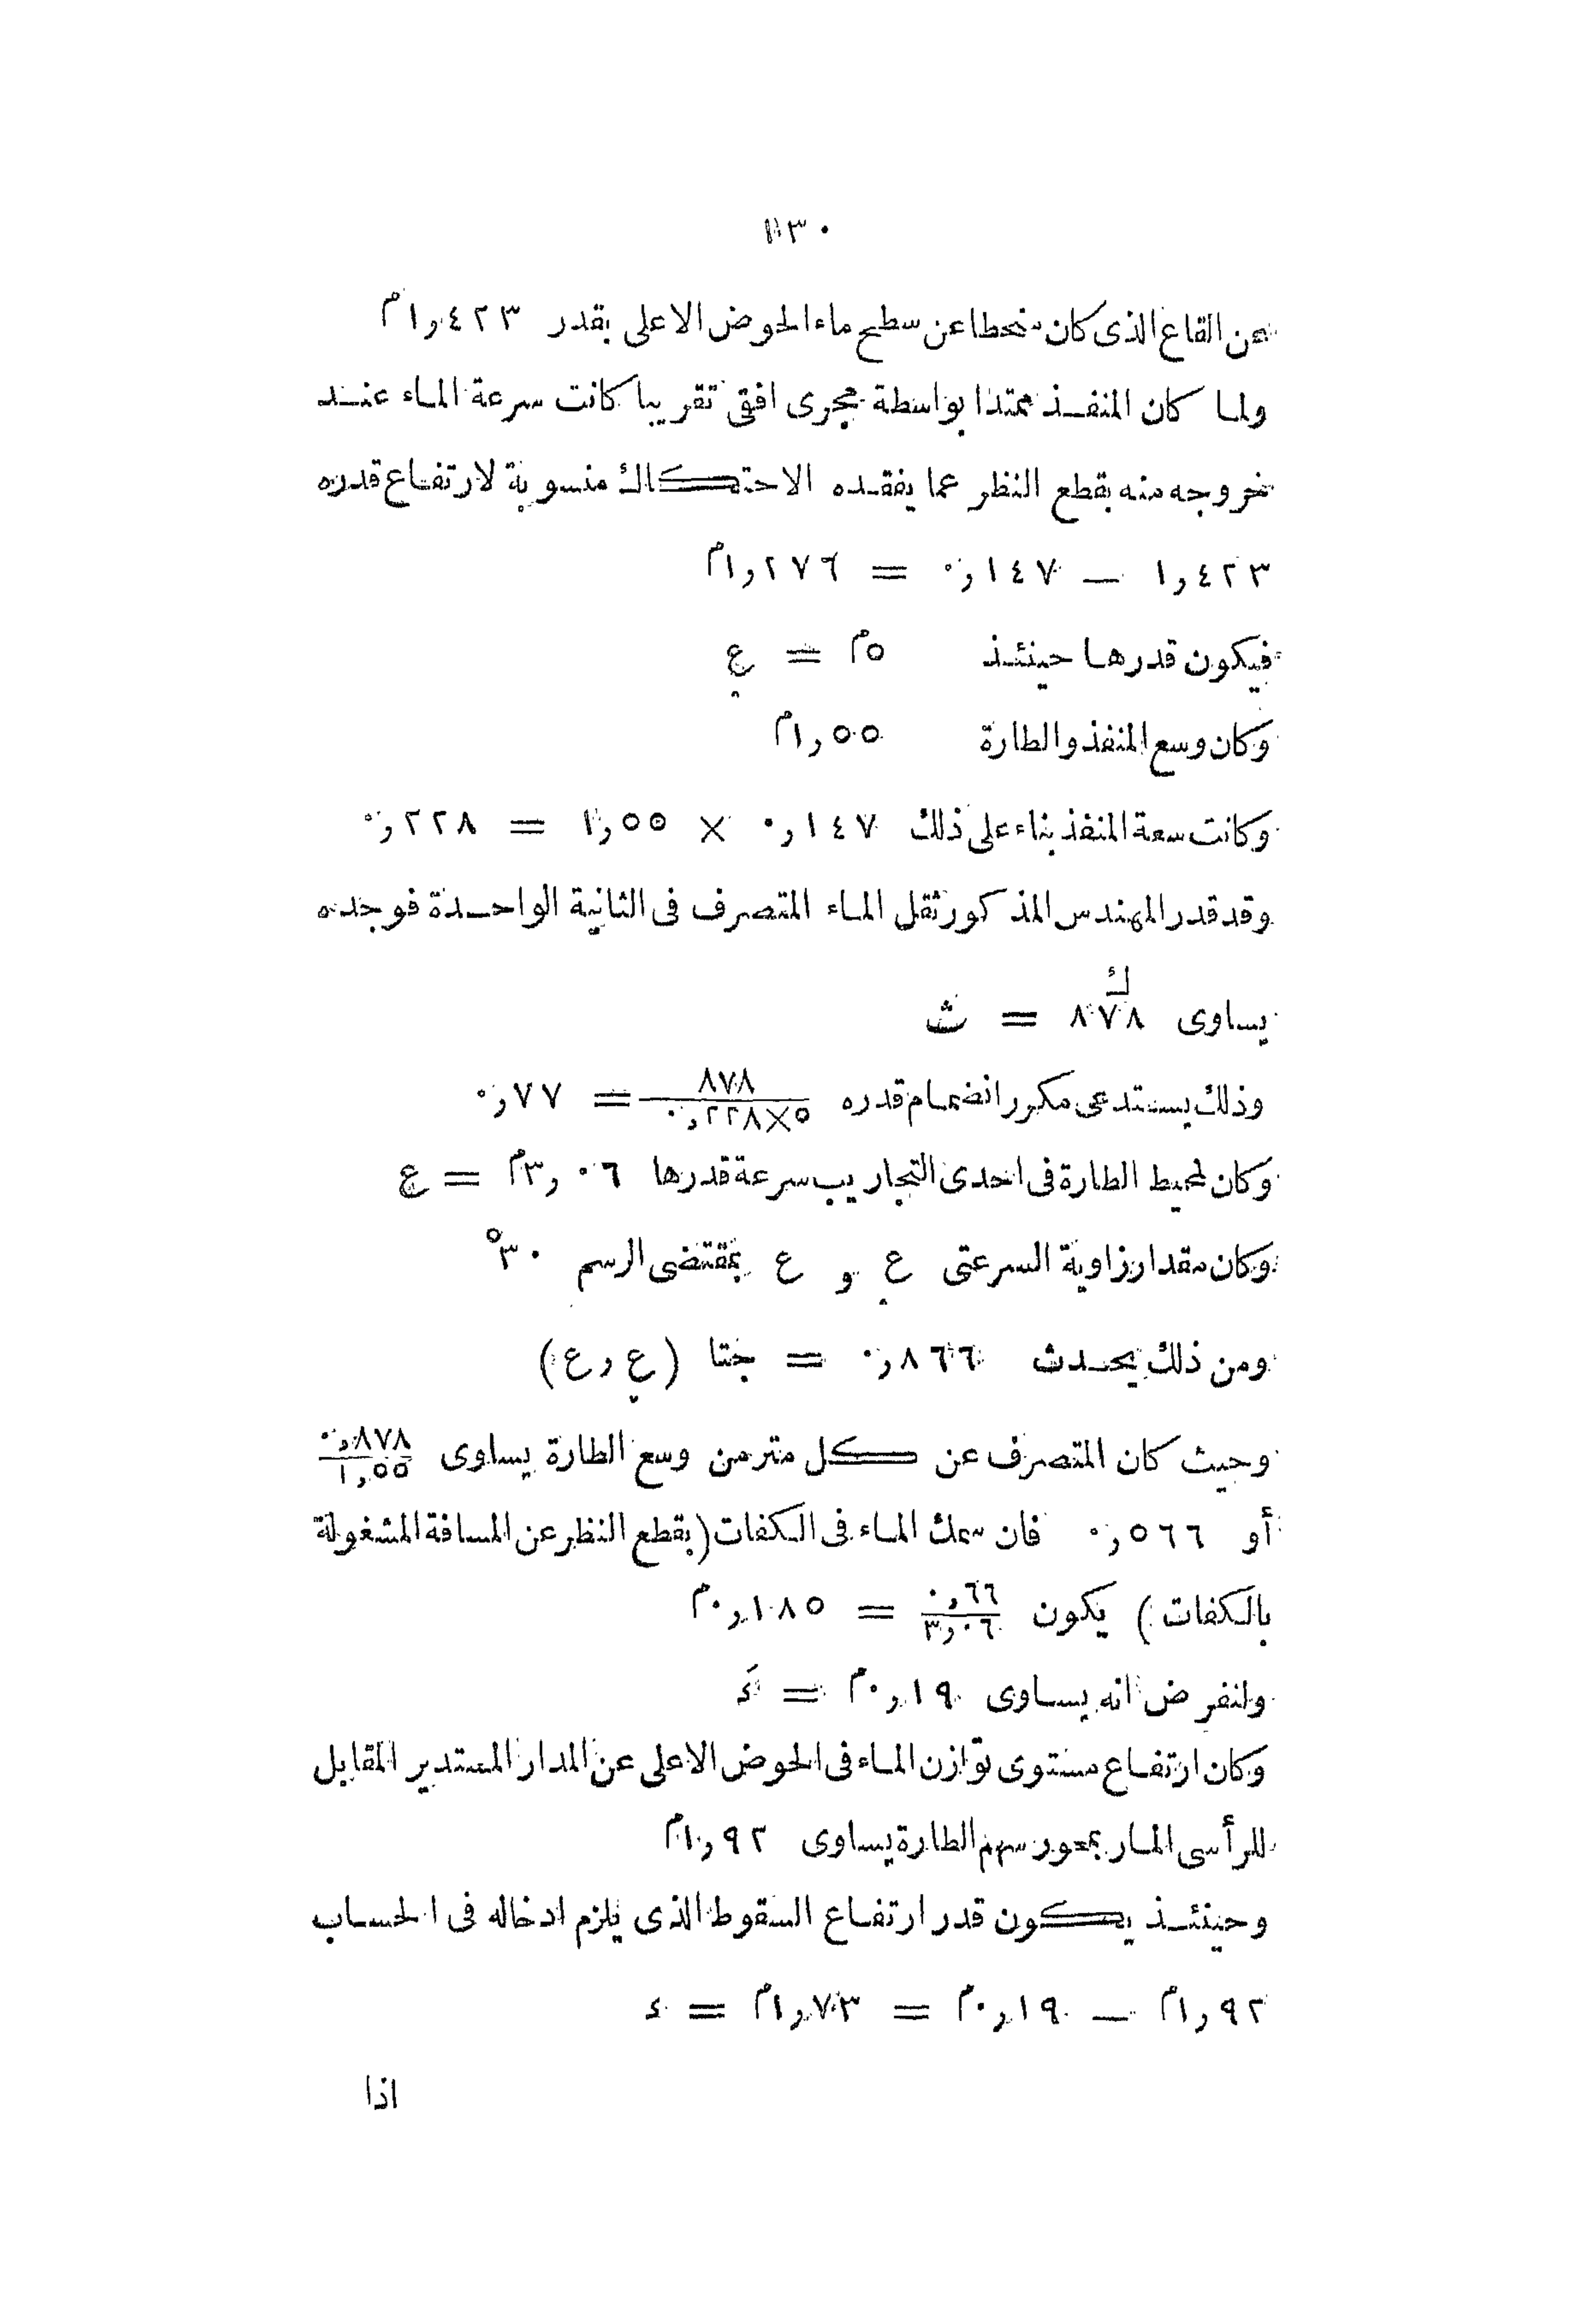 ١٣٠
عن القاع الذى كان منحطا عن سطح ماء الحوض الاعلى بقدر ١٫٤٢٣م
ولما كان المنفذ ممتدا بواسطة مجرى افقى تقريبا كانت سرعة الماء عند
خروجه منه بقطع النظر عما يفقده الاحتكاك منسوبة لارتفاع قدره
١٫٤٢٣ — ٠٫١٤٧ = ١٫٢٧٦م
فيكون قدرها حينئذ ٥م = ع
وكان وسع المنفذ والطارة ١٫٥٥م
وكانت سعة المنفذ بناء على ذلك ٠٫١٤٧ × ١٫٥٥ = ٠٫٢٢٨
وقد قدر المهندس المذكور ثقل الماء المتصرف فى الثانية الواحدة فوجده
يساوى ٨٧٨ك = ث
وذلك يستدعى مكرر انضمام قدره ٨٧٨/٥×٠٫٢٢٨ = ٠٫٧٧
وكان لمحيط الطارة فى احدى التجاريب سرعة قدرها ٣٫٠٦م = ع
وكان مقدار زاوية السرعتى ع و ع بمقتضى الرسم ٣٠°
ومن ذلك يحدث ٠٫٨٦٦ = جتا (ع ر ع)
وحيث كان المتصرف عن كل متر من وسع الطارة يساوى ٠٫٨٧٨/١٫٥٥
أو ٠٫٥٦٦ فان سمك الماء فى الكفات (بقطع النظر عن المسافة المشغولة
بالكفات) يكون ٠٫٦٦/٣٫٠٦ = ٠٫١٨٥م
ولنفرض انه يساوى ٠٫١٩م = ءَ
وكان ارتفاع مستوى توازن الماء فى الحوض الاعلى عن المدار المستدير المقابل
للرأسى المار بمحور سهم الطارة يساوى ١٫٩٢م
وحينئذ يكون قدر ارتفاع السقوط الذى يلزم ادخاله فى الحساب
١٫٩٢م — ٠٫١٩م = ١٫٧٣م = ء
اذا